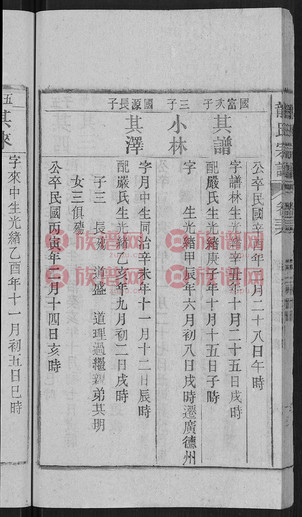 公卒民國辛酉年八月二十八日午時
國富次子
其譜
字譜林生光緒辛丑年十月二十五日戌時
配嚴氏生光緒庚子年十月十五日子時
三子
小林
字 生光緒甲辰年六月初八日戌時遷廣德州
國源長子
其澤
字月中生同治辛未年十一月十二日辰時
配嚴氏生光緒乙亥年九月初二日戌時
子三 長 道理過繼親弟其明
女三俱殤
公卒民國丙寅年二月十四日亥時
五
其來
字來中生光緒乙酉年十一月初五日巳時
族譜網